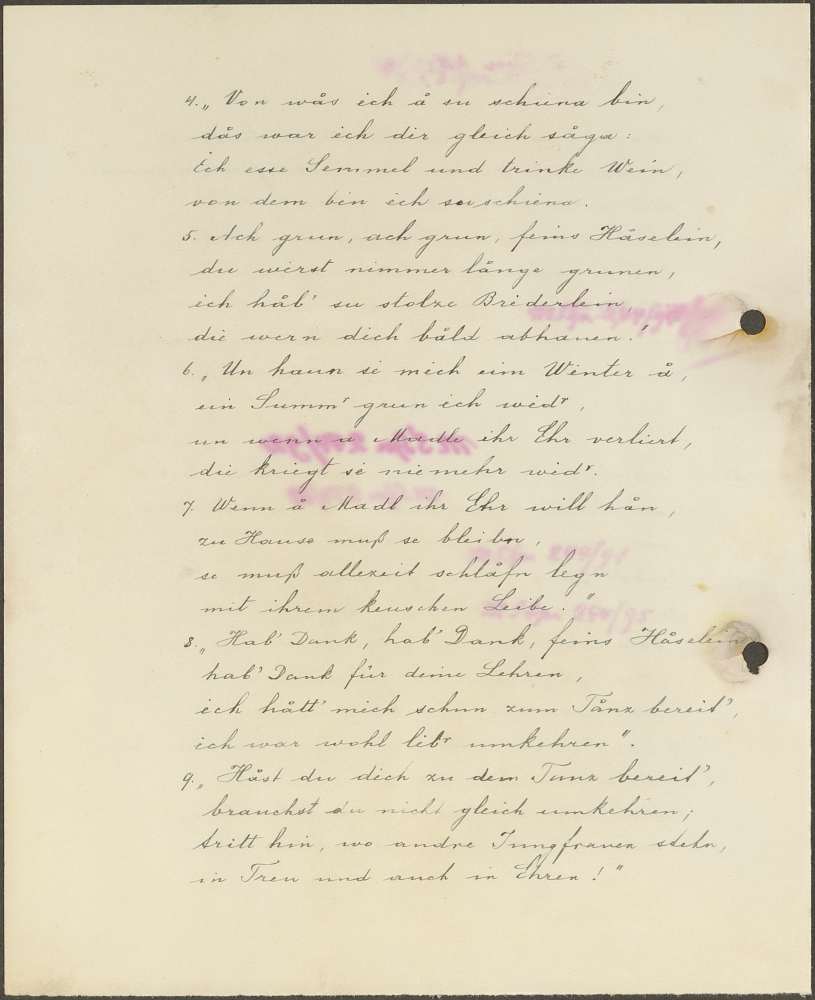 4. „Von wås ich å su schiena bin,
dås war ich dir gleich såga:
Ich esse Semmel und trinke Wein,
von dem bin ich su schiena.
5. Ach grun, ach grun, feins Håselein,
du wirst nimmer långe grunen,
ich håb' su stolze Briderlein,
die wern dich båld abhauen!
6. „Un haun se mich eim Winter å,
ein Summr grun ich widr,
un wenn a Madle ihr Ehr verliert,
die kriegt se niemehr widr.
7. Wenn å Madl ihr Ehr will hån,
zu Hause muß se bleibn,
se muß allezeit schlåfn legn
mit ihrem keuschen Leibe."
8. „Hab' Dank, hab' Dank, feins Håselein
hab' Dank für deine Lehren,
ich hått' mich schun zum Tånz bereit',
ich war wohl libr umkehren".
9. „Håst du dich zu dem Tanz bereit',
brauchst du nicht gleich umkehren;
tritt hin, wo andre Jungfrauen stehn,
in Treu und auch in Ehren!"